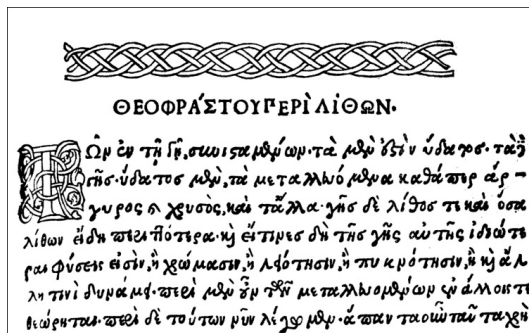 ΘΕΟΦΡΑ´ΣΤΟΥ ΠΕΡΙ` ΛΙ´ΘΩΝ·
Τῶν ἐν τῇ γῇ, συνισταμένων· τὰ μὲν ἐξὶν ὕδατος· τὰ δὲ
γῆς· ὕδατος μὲν, τὰ μεταλλευόμενα καθάπερ ἄρ-
γυρος καὶ χρυσὸς, καὶ τἄλλα· γῆς δὲ λίθος τε καὶ ὅσα
λίθων εἴδη περιττότερα· καὶ εἴτινες δὴ τῆς γῆς αὐτῆς ἰδιώτε
ραι φύσεις εἰσὶν, ἢ χρώμασιν, ἢ λειότησιν, ἢ πυκνότησιν, ἢ καὶ ἄλ
λη τινὶ δυνάμει· περὶ μὲν οὖν τῶν μεταλλευομένων ἐν ἄλλοις τε
θεώρηται· περὶ δὲ τούτων νῦν λέγωμεν· ἅπαντα